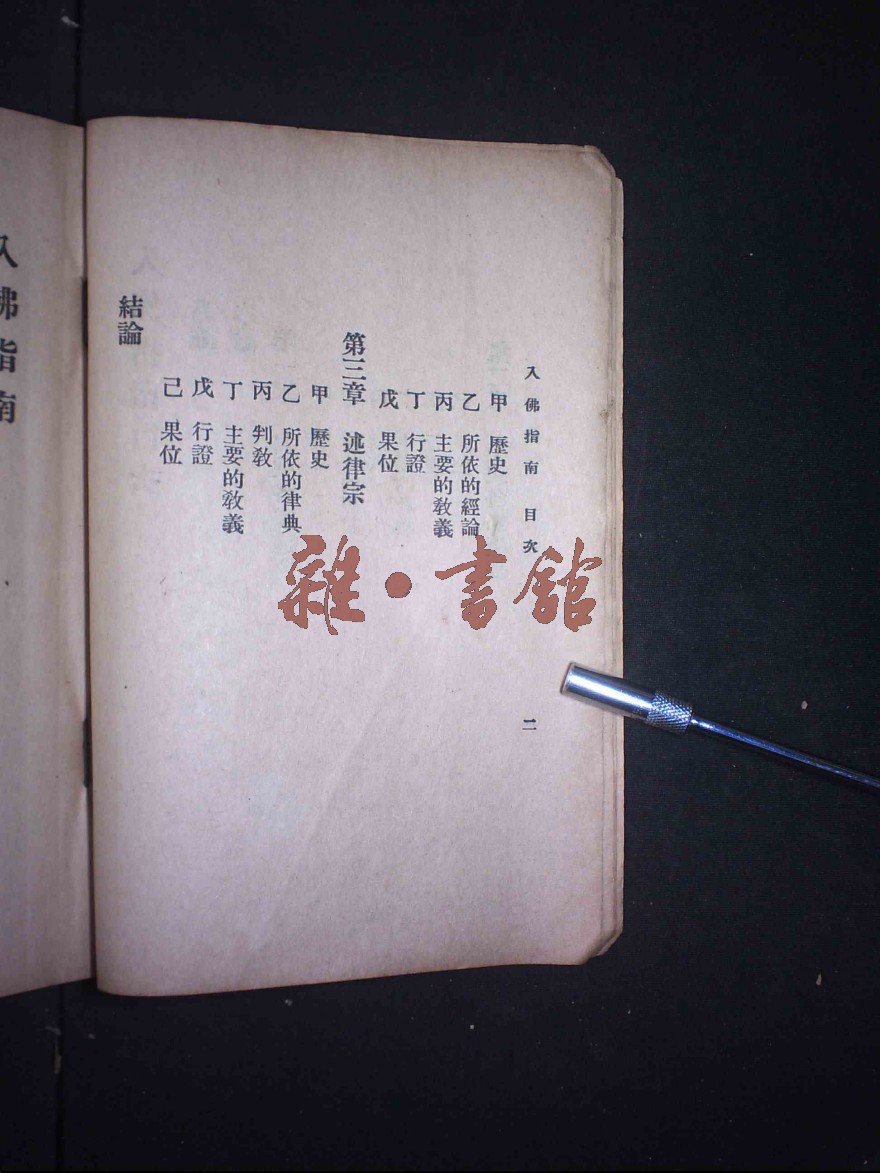 入佛指南 目次
二
甲 歷史
乙 所依的經論
丙 主要的教義
丁 行證
戊 果位
第三章 述律宗
甲 歷史
乙 所依的律典
丙 判教
丁 主要的教義
戊 行證
己 果位
結論
入佛指南
雜·書館